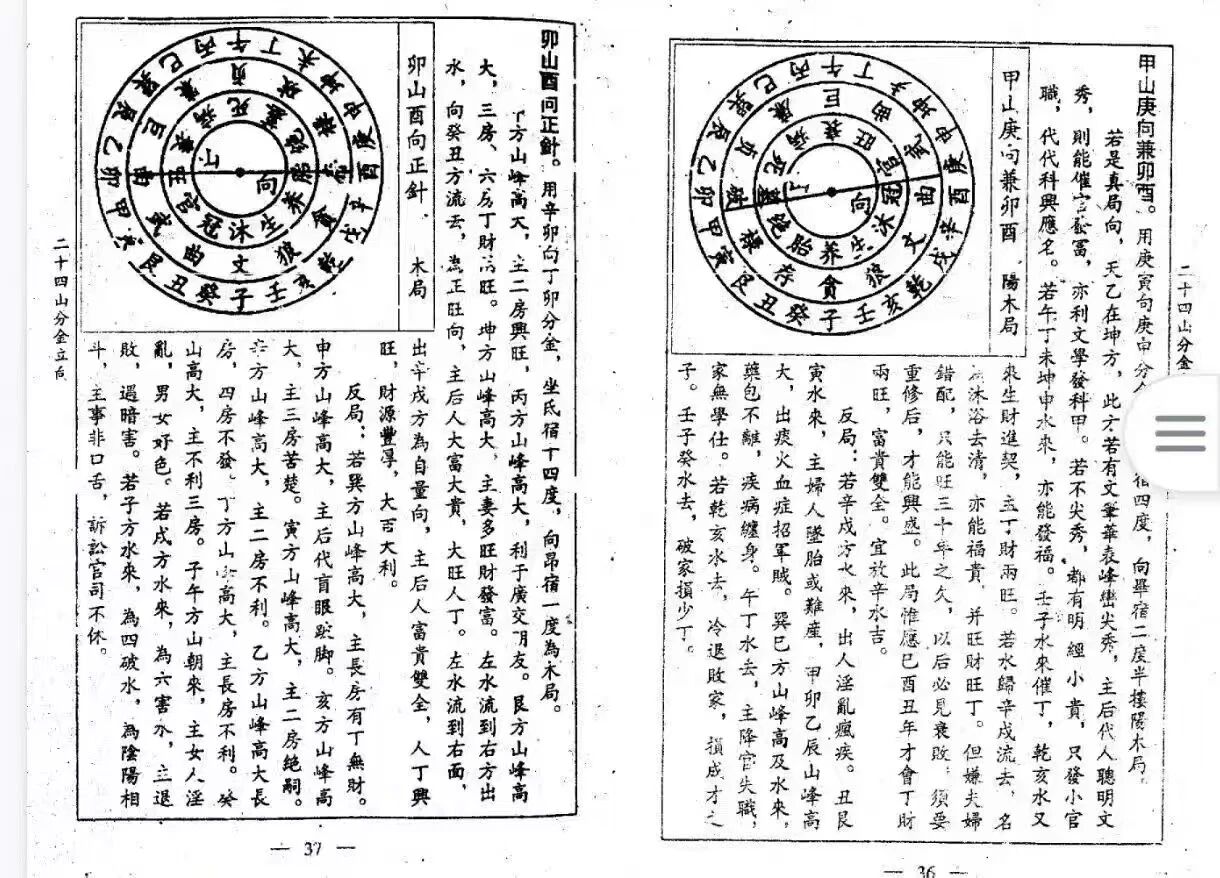 二十四山分金
甲山庚向兼卯酉。用庚寅向庚申分 宿四度，向畢宿二度半 陽木局。
若是真局向，天乙在坤方，此方若有文筆華表峰巒尖秀，主后代人聰明文
秀，則能催官發富，亦利文學發科甲。若不尖秀，都有明經小貴，只發小官
職，代代科興應名。若午丁未坤申水來，亦能發福。壬子水來催丁，乾亥水又
甲山庚向兼卯酉 陽木局
丙午丁未坤申庚酉辛戌乾亥壬子癸丑艮寅甲卯乙辰巽巳
巨 曲 武 曲 文 狼 貪 存 祿 破 貞 廉
旺 官 冠 沐 生 养 胎 绝 墓 死 病 衰
山 向
來生財進契，主丁財兩旺。若水歸辛戌流去，名
沐浴去清，亦能福貴，并旺財旺丁。但嫌夫婦
錯配，只能旺三十年之久，以后必見衰敗，須要
重修后，才能興盛。此局惟應巳酉丑年才會丁財
兩旺，富貴雙全。宜放辛水吉。
反局：若辛戌方水來，出人淫亂瘋疾。丑艮
寅水來，主婦人墜胎或難産，甲卯乙辰山峰高
大，出痰火血症招軍賊。巽巳方山峰高及水來，
藥包不離，疾病纏身。午丁水去，主降官失職，
家無學仕。若乾亥水去，冷退敗家，損成才之
子。壬子癸水去，破家損少丁。
— 36 —
卯山酉向正針。用辛卯向丁卯分金，坐氐宿十四度，向昴宿一度為木局。
方山峰高大，主二房興旺，丙方山峰高大，利于廣交朋友。艮方山峰高
大，三房、六房丁財 旺。坤方山峰高大，主妻多旺財發富。左水流到右方出
水，向癸丑方流去，為正旺向，主后人大富大貴，大旺人丁。左水流到右面，
卯山酉向正針 木局
丙午丁未坤申庚酉辛戌乾亥壬子癸丑艮寅甲卯乙辰巽巳
貞 破 祿 存 貪 狼 文 曲 武 曲 巨 廉
死 墓 绝 胎 养 生 沐 冠 官 旺 衰 病
山 向
出辛戌方為自量向，主后人富貴雙全，人丁興
旺，財源豐厚，大吉大利。
反局：若巽方山峰高大，主長房有丁無財。
申方山峰高大，主后代盲眼跎脚。亥方山峰高
大，主三房苦楚。寅方山峰高大，主二房绝嗣。
辛方山峰高大，主二房不利。乙方山峰高大長
房，四房不發。丁方山峰高大，主長房不利。癸
山高大，主不利三房。子午方山朝來，主女人淫
亂，男女好色。若戌方水來，為六害水，主退
敗，過暗害。若子方水來，為四破水，為陰陽相
斗，主事非口舌，訴訟官司不休。
二十四山分金立向
— 37 —